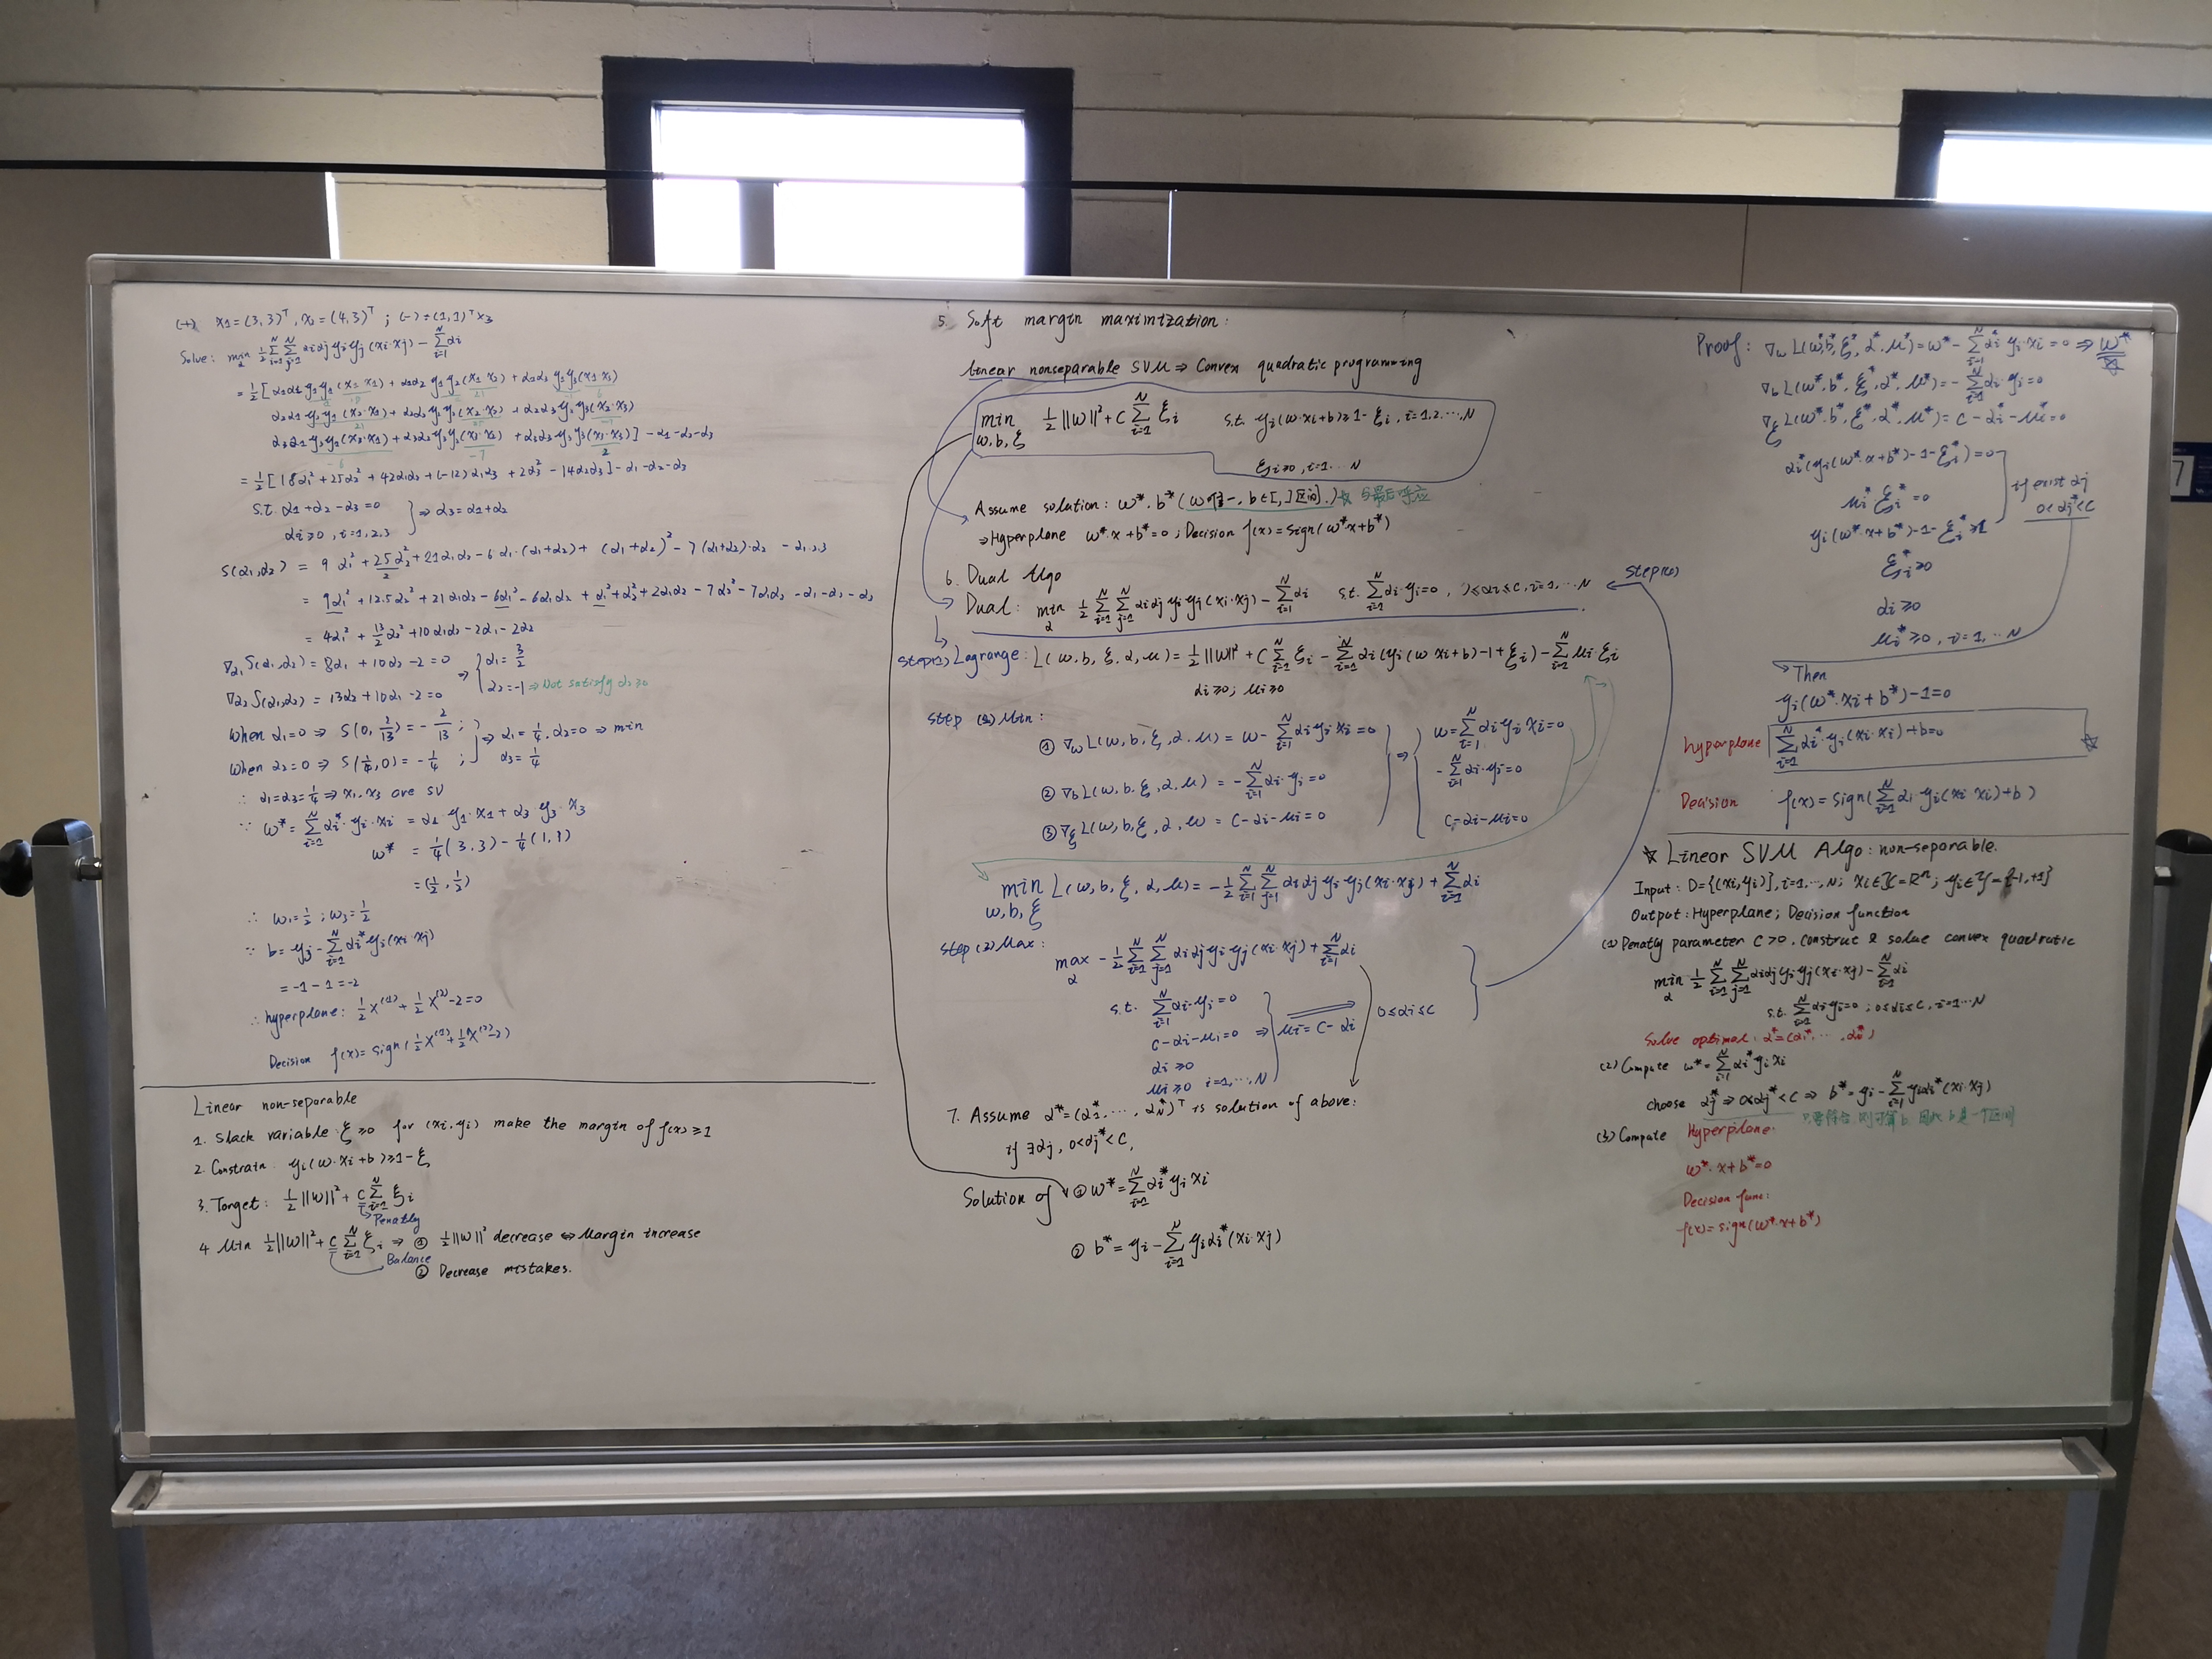 (+) x1=(3,3)ᵀ, x2=(4,3)ᵀ ; (-) = (1,1)ᵀ x3
Solve: min_α ½ Σ_{i=1}^N Σ_{j=1}^N αiαj yi yj (xi·xj) - Σ_{i=1}^N αi
= ½[α1α1 y1y1(x1·x1) + α1α2 y1y2(x1·x2) + α1α3 y1y3(x1·x3)
18 21 6
α2α1 y2y1(x2·x1) + α2α2 y2y2(x2·x2) + α2α3 y2y3(x2·x3)
21 25 -7
α3α1 y3y1(x3·x1) + α3α2 y3y2(x3·x2) + α3α3 y3y3(x3·x3)] - α1-α2-α3
-6 -7 2
= ½[18α1² + 25α2² + 42α1α2 + (-12)α1α3 + 2α3² - 14α2α3] - α1-α2-α3
s.t. α1+α2-α3=0
αi≥0, i=1,2,3
⇒ α3=α1+α2
S(α1,α2) = 9α1² + 25/2 α2² + 21α1α2 - 6α1·(α1+α2) + (α1+α2)² - 7(α1+α2)·α2 - α1,2,3
= 9α1² + 12.5α2² + 21α1α2 - 6α1² - 6α1α2 + α1² + α2² + 2α1α2 - 7α2² - 7α1α2 - α1-α2-α3
= 4α1² + 13/2 α2² + 10α1α2 - 2α1 - 2α2
∇α1 S(α1,α2) = 8α1 + 10α2 - 2 = 0
∇α2 S(α1,α2) = 13α2 + 10α1 - 2 = 0
⇒ { α1 = 3/2
α2 = -1 ⇒ Not satisfy α2≥0
When α1=0 ⇒ S(0, 2/13) = -2/13 ;
When α2=0 ⇒ S(1/4, 0) = -1/4 ;
⇒ α1=1/4, α2=0 ⇒ min
α3=1/4
∴ α1=α3=1/4 ⇒ x1, x3 are SV
∵ w* = Σ_{i=1}^N αi* yi·xi = α1·y1·x1 + α3·y3·x3
w* = 1/4(3,3) - 1/4(1,1)
= (1/2, 1/2)
∴ w1=1/2 ; w3=1/2
∵ b = yj - Σ_{i=1}^N αi* yi(xi·xj)
= -1 - 1 = -2
∴ hyperplane: ½x⁽¹⁾ + ½x⁽²⁾ - 2 = 0
Decision f(x) = sign(½x⁽¹⁾ + ½x⁽²⁾ - 2)
Linear non-separable
1. Slack variable ξ≥0 for (xi,yi) make the margin of f(x)≥1
2. Constrain: yi(w·xi+b)≥1-ξi
3. Target: ½||w||² + C Σ_{i=1}^N ξi
Penatly
4. Min ½||w||² + C Σ_{i=1}^N ξi ⇒ ① ½||w||² decrease ⇔ Margin increase
Balance
② Decrease mistakes.
5. Soft margin maximization:
Linear nonseparable SVM ⇒ Convex quadratic programming
min_{w,b,ξ} ½||w||² + C Σ_{i=1}^N ξi s.t. yi(w·xi+b)≥1-ξi, i=1,2,...,N
ξi≥0, i=1...N
Assume solution: w*, b* (w唯一, b∈[,]区间.) ☆ 与最后呼应
⇒ Hyperplane w*·x+b*=0 ; Decision f(x)=sign(w*x+b*)
6. Dual Algo
Dual: min_α ½ Σ_{i=1}^N Σ_{j=1}^N αiαj yi yj(xi·xj) - Σ_{i=1}^N αi s.t. Σ_{i=1}^N αi·yi=0, 0≤αi≤C, i=1,...N
step(1) Lagrange: L(w,b,ξ,α,μ) = ½||w||² + C Σ_{i=1}^N ξi - Σ_{i=1}^N αi(yi(w·xi+b)-1+ξi) - Σ_{i=1}^N μiξi
αi≥0; μi≥0
step (2) Min:
① ∇w L(w,b,ξ,α,μ) = w - Σ_{i=1}^N αi yi xi = 0
② ∇b L(w,b,ξ,α,μ) = -Σ_{i=1}^N αi·yi = 0
③ ∇ξ L(w,b,ξ,α,μ) = C-αi-μi = 0
⇒ { w = Σ_{i=1}^N αi yi xi = 0
-Σ_{i=1}^N αi·yi = 0
C-αi-μi=0
min_{w,b,ξ} L(w,b,ξ,α,μ) = -½ Σ_{i=1}^N Σ_{j=1}^N αiαj yi yj(xi·xj) + Σ_{i=1}^N αi
step (3) Max:
max_α -½ Σ_{i=1}^N Σ_{j=1}^N αiαj yi yj(xi·xj) + Σ_{i=1}^N αi
s.t. Σ_{i=1}^N αi·yi=0
C-αi-μi=0 ⇒ μi=C-αi
αi≥0
μi≥0 i=1,...,N
0≤αi≤C
7. Assume α*=(α1*,...,αN*)ᵀ is solution of above:
if ∃αj, 0<αj*<C,
Solution of ① w* = Σ_{i=1}^N αi* yi xi
② b* = yi - Σ_{i=1}^N yi αi*(xi·xj)
Proof: ∇w L(w*,b*,ξ*,α*,μ*) = w* - Σ_{i=1}^N αi* yi·xi = 0 ⇒ w*
∇b L(w*,b*,ξ*,α*,μ*) = -Σ_{i=1}^N αi·yi=0
∇ξ L(w*,b*,ξ*,α*,μ*) = C-αi*-μi*=0
αi*(yi(w*·x+b*)-1-ξi*)=0
μi*ξi*=0
yi(w*·x+b*)-1-ξi*≥1
ξi*≥0
αi≥0
μi*≥0, i=1,...N
if exist αj
0<αj*<C
Then
yi(w*·xi+b*)-1=0
hyperplane Σ_{i=1}^N αi*·yi(xi·xi)+b=0 ☆
Decision f(x)=sign(Σ_{i=1}^N αi·yi(xi·xi)+b)
☆ Linear SVM Algo: non-separable.
Input: D={(xi,yi)}, i=1,...,N; xi∈X=Rⁿ; yi∈Y={-1,+1}
Output: Hyperplane; Decision function
(1) Penatly parameter C>0, construct & solve convex quadratic
min_α ½ Σ_{i=1}^N Σ_{j=1}^N αiαj yi yj(xi·xj) - Σ_{i=1}^N αi
s.t. Σ_{i=1}^N αi yi=0 ; 0≤αi≤C, i=1...N
Solve optimal: α*=(αi*,...,αi*)
(2) Compute w* = Σ_{i=1}^N αi* yi xi
choose αj* ⇒ 0<αj*<C ⇒ b* = yi - Σ_{i=1}^N yiαi*(xi·xj)
(3) Compute Hyperplane.
w*·x+b*=0
Decision func:
f(x)=sign(w*·x+b*)
7